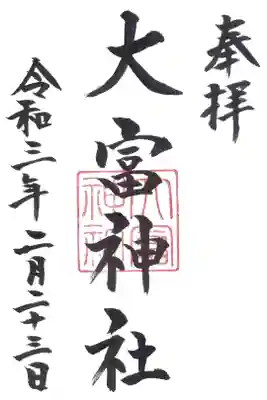 奉拝
大富神社
令和三年 二月二十三日
大富
神社